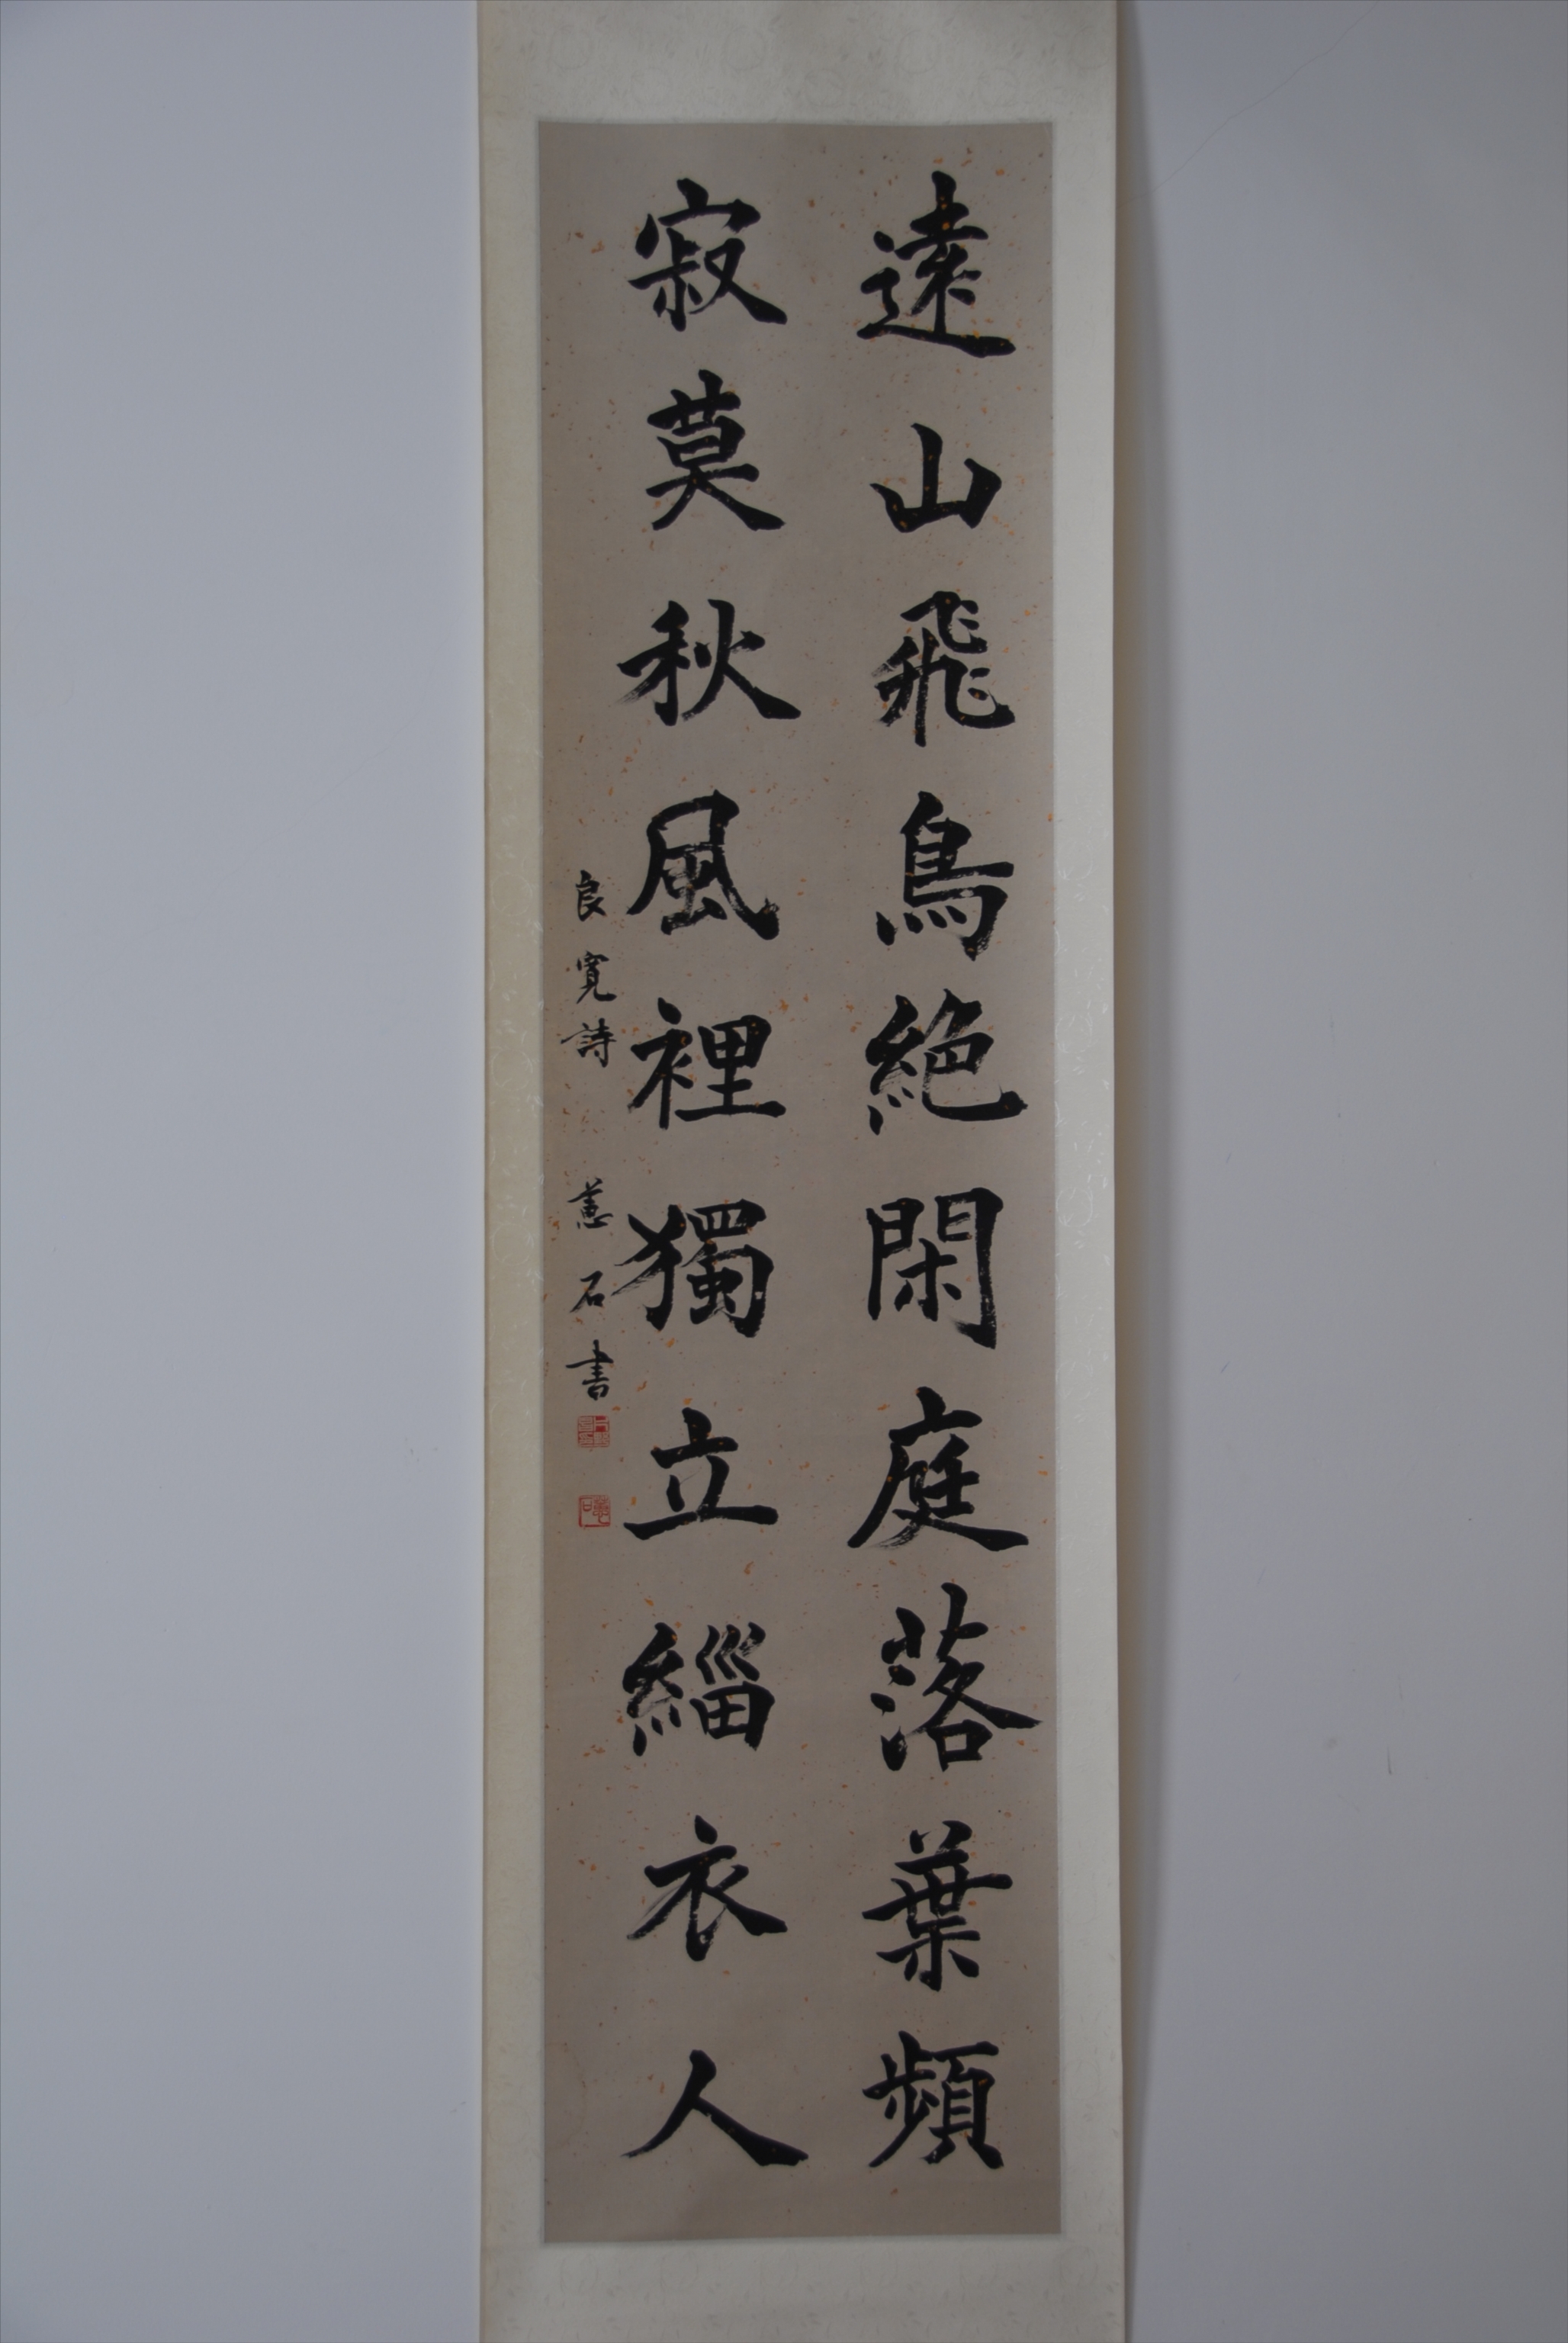 遠山飛鳥絶閑庭落葉頻
寂莫秋風裡獨立緇衣人
良寛詩 蕙石書